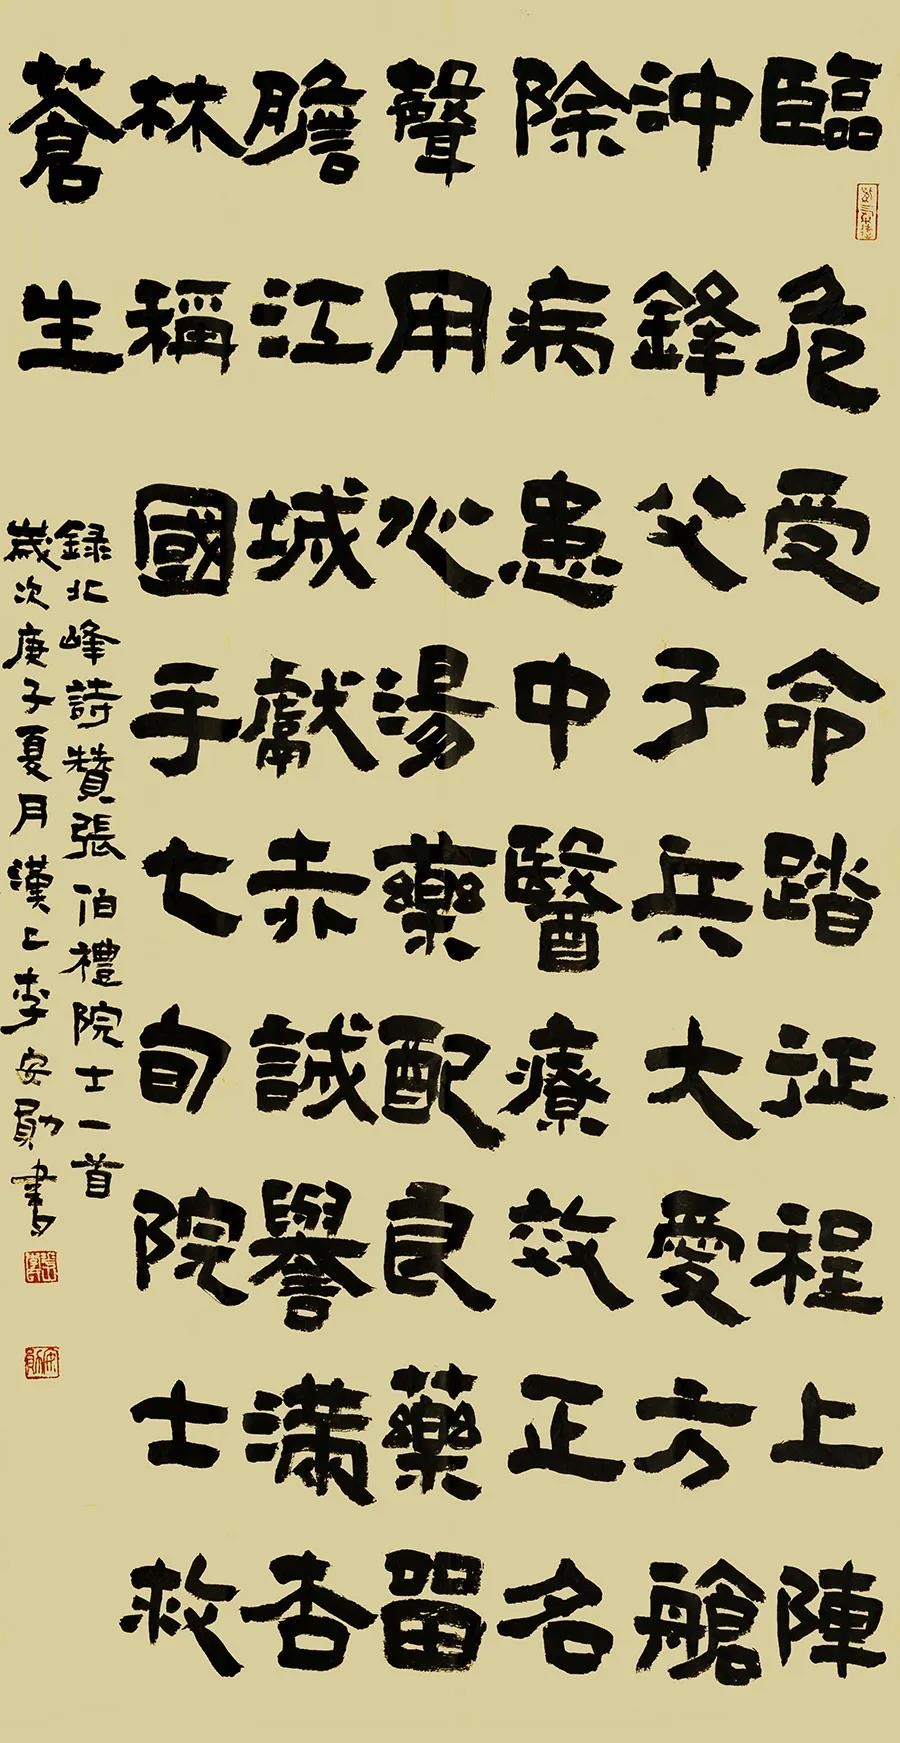 臨危受命踏征程上陣
沖鋒父子兵大愛方艙
除病患中醫療效正名
聲用心湯藥配良藥留
膽江城獻赤誠譽滿杏
林稱國手七旬院士救
蒼生
録北峰詩贊張伯禮院士一首
歲次庚子夏月漢上李安勛書